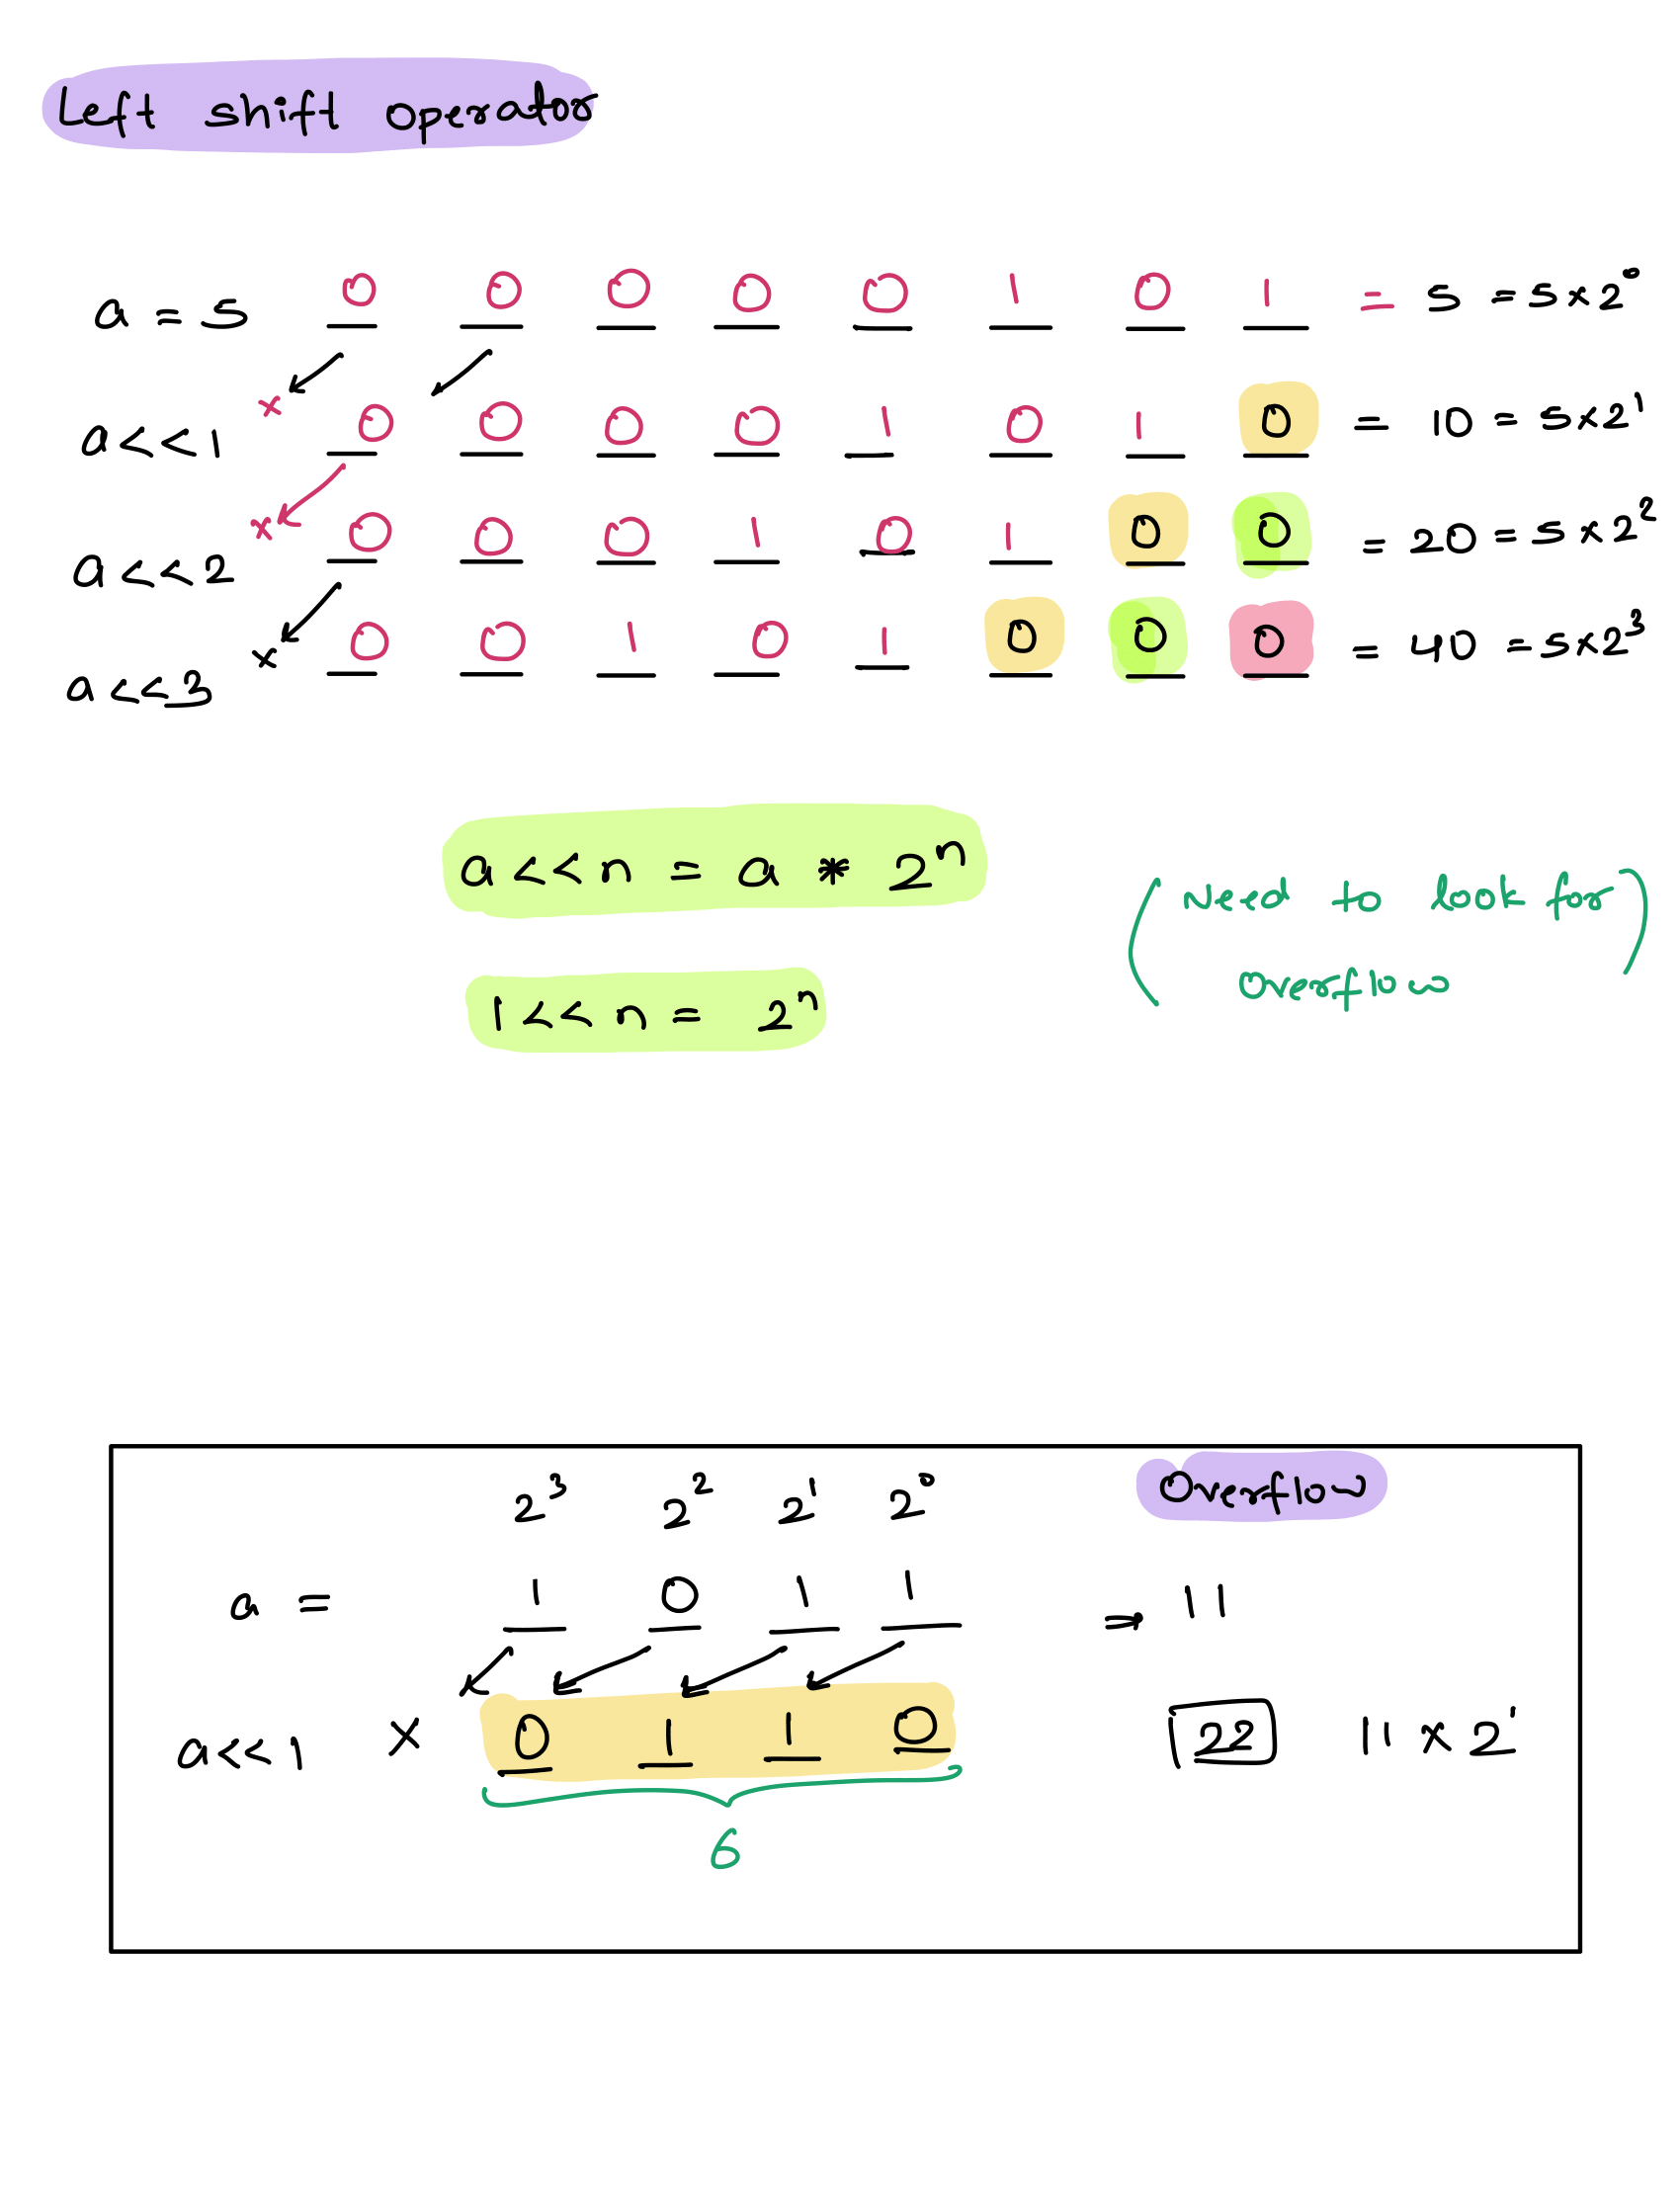 Left shift operator
a = 5 0 0 0 0 0 1 0 1 = 5 = 5 x 2⁰
a << 1 x 0 0 0 0 1 0 1 0 = 10 = 5 x 2¹
a << 2 x 0 0 0 1 0 1 0 0 = 20 = 5 x 2²
a << 3 x 0 0 1 0 1 0 0 0 = 40 = 5 x 2³
a << n = a * 2ⁿ
(Need to look for
overflow)
1 << n = 2ⁿ
Overflow
2³ 2² 2¹ 2⁰
a = 1 0 1 1 ⇒ 11
a << 1 x 0 1 1 0 22 11 x 2¹
6